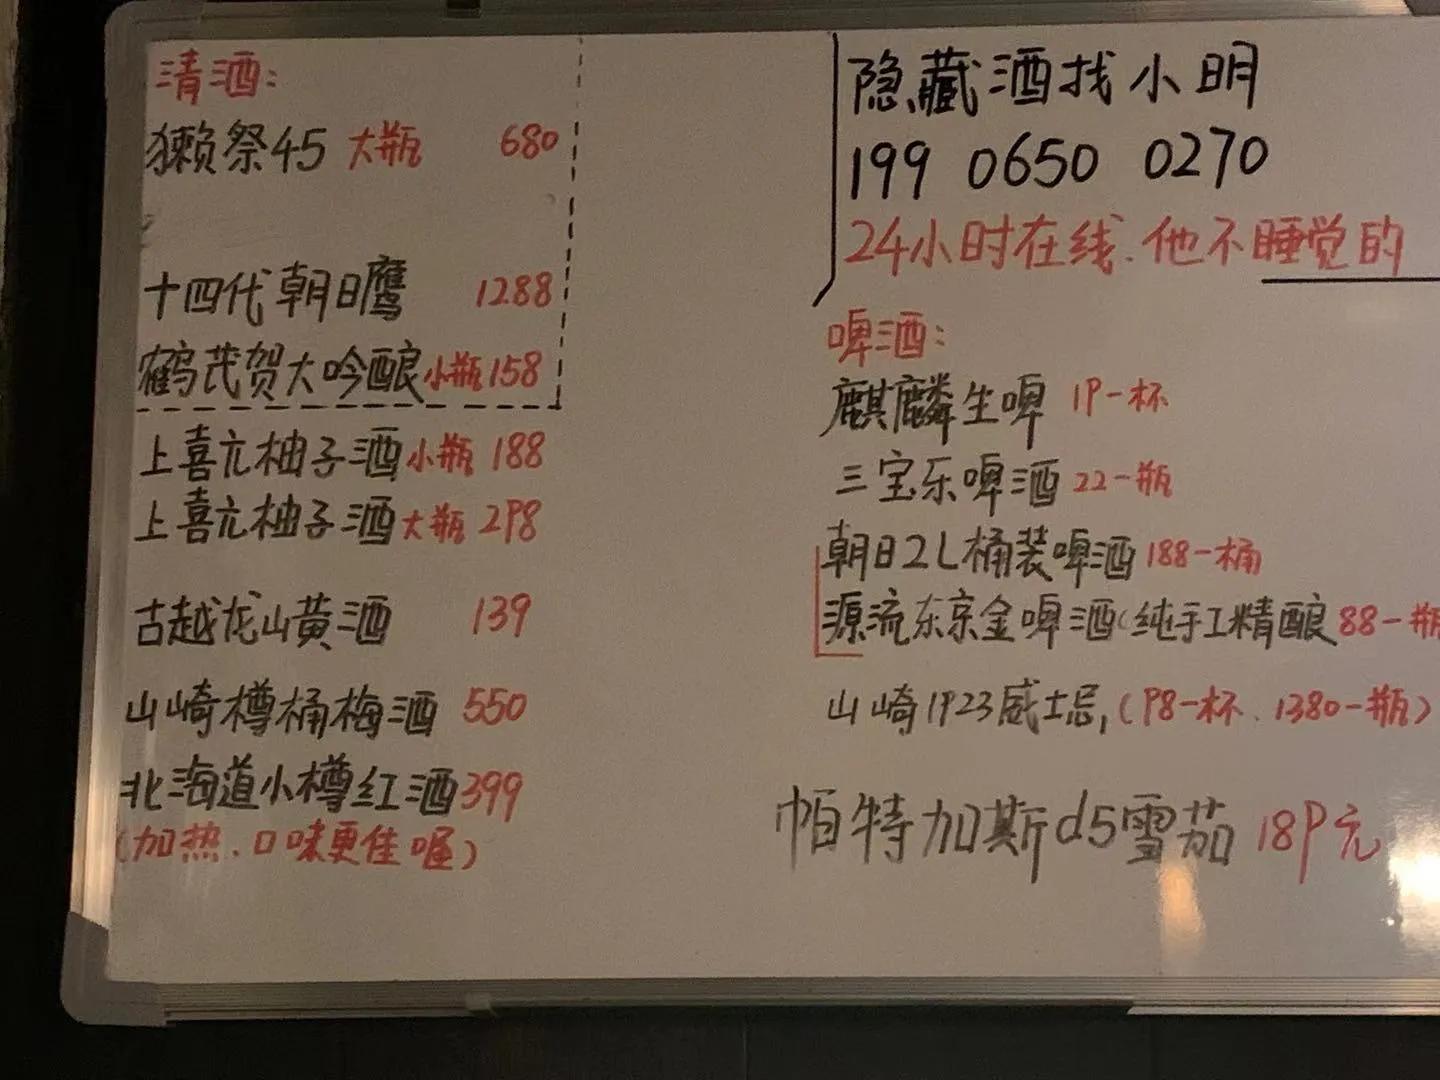 清酒:
獭祭45 大瓶 680
十四代朝日鹰 1288
鹤茂贺大吟酿小瓶158
上喜亢柚子酒小瓶 188
上喜亢柚子酒大瓶 298
古越龙山黄酒 139
山崎樽桶梅酒 550
北海道小樽红酒399
(加热.口味更佳喔)
隐藏酒找小明
199 0650 0270
24小时在线.他不睡觉的
啤酒:
麒麟生啤 19一杯
三宝乐啤酒 22一瓶
朝日2L桶装啤酒 188一桶
源流东京金啤酒(纯手工精酿 88一瓶
山崎1923威士忌,(98一杯、1380一瓶)
帕特加斯d5雪茄 189元